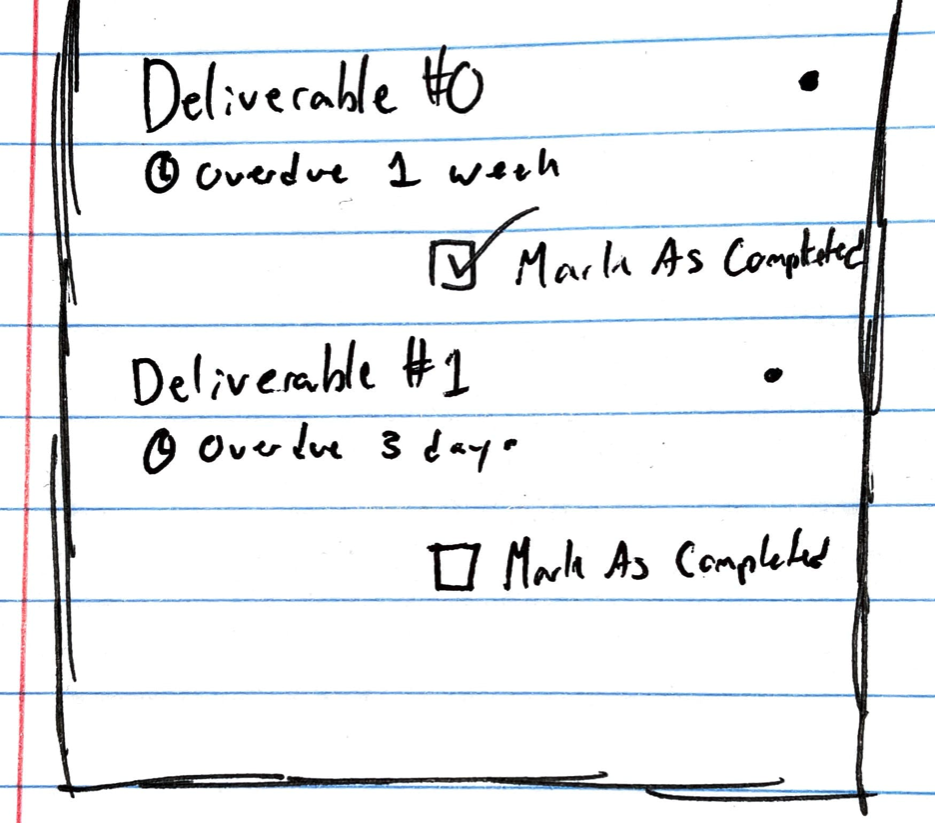 Deliverable #0
Overdue 1 week
Mark As Completed
Deliverable #1
Overdue 3 days
Mark As Completed